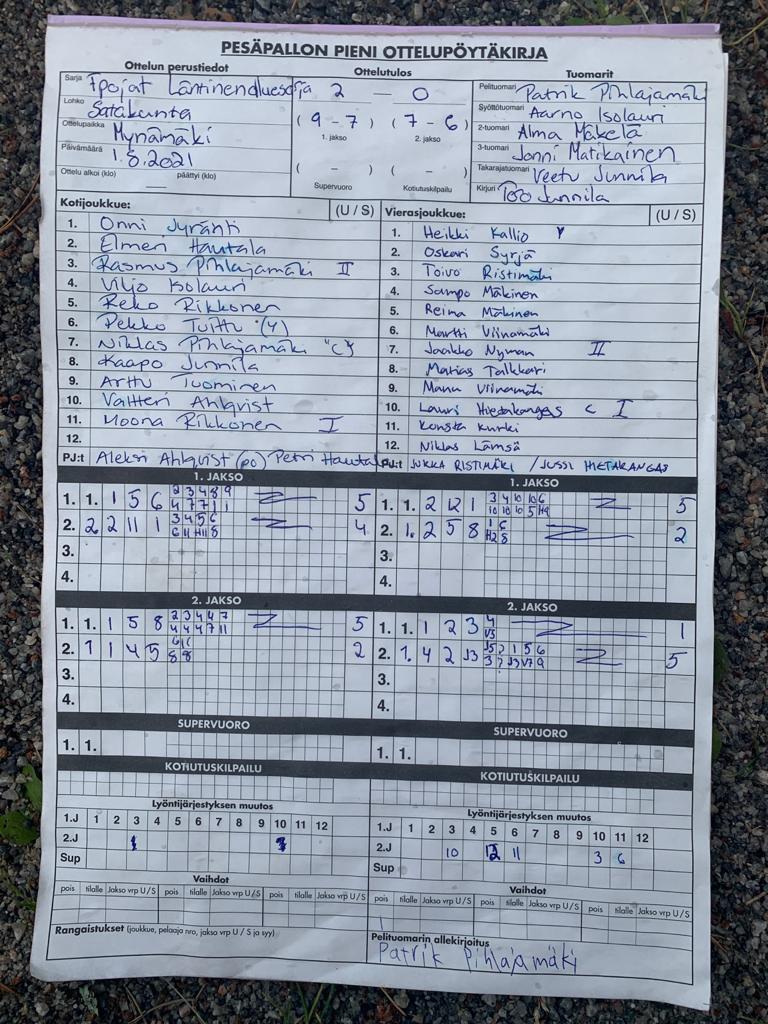 PESÄPALLON PIENI OTTELUPÖYTÄKIRJA
Ottelun perustiedot
Sarja Fpojat Läntinenaluesarja
Lohko Satakunta
Ottelupaikka Mynämäki
Päivämäärä 1.8.2021
Ottelu alkoi (klo) päättyi (klo)
Ottelutulos
2 — 0
( 9 - 7 ) ( 7 - 6 )
1. jakso 2. jakso
( - ) ( - )
Supervuoro Kotiutuskilpailu
Tuomarit
Pelituomari Patrik Pihlajamäki
Syöttötuomari Aarno Isolauri
2-tuomari Alma Mäkelä
3-tuomari Jonni Matikainen
Takarajatuomari Veetu Junnila
Kirjuri Junnila
Kotijoukkue: (U / S)
1. Onni Jyränti
2. Elmeri Hautala
3. Rasmus Pihlajamäki II
4. Viljo Isolauri
5. Reko Rikkonen
6. Pekko Tuittu (Y)
7. Niklas Pihlajamäki "C"
8. Kaapo Junnila
9. Arttu Tuominen
10. Valtteri Ahlqvist
11. Moona Rikkonen I
12.
PJ:t Aleksi Ahlqvist (po) Petri Hautala
Vierasjoukkue: (U / S)
1. Heikki Kallio Y
2. Oskari Syrjä
3. Toivo Ristimäki
4. Sampo Mäkinen
5. Reina Mäkinen
6. Martti Viinamäki
7. Jaakko Nyman II
8. Matias Talkkari
9. Manu Viinamäki
10. Lauri Hietakangas C I
11. Konsta Kurki
12. Niklas Lämsä
PJ:t JUKKA RISTIMÄKI / JUSSI HIETAKANGAS
1. JAKSO
1. 1. 1 5 6 2 3 4 8 9 5
4 7 7 1 1
2. 2 2 11 1 3 4 5 6 4
6 11 H11 8
3.
4.
1. JAKSO
1. 1. 2 12 1 3 4 10 10 6 5
10 10 10 5 H9
2. 1. 2 5 8 1 6 2
H2 8
3.
4.
2. JAKSO
1. 1. 1 5 8 2 3 4 4 7 5
4 4 4 7 11
2. 1 1 4 5 2
8 8
3.
4.
2. JAKSO
1. 1. 1 2 3 4 1
V3
2. 1. 4 2 J3 1 5 6 5
3 J3 V7 9
3.
4.
SUPERVUORO
1. 1.
SUPERVUORO
1. 1.
KOTIUTUSKILPAILU
KOTIUTUSKILPAILU
Lyöntijärjestyksen muutos
1.J 1 2 3 4 5 6 7 8 9 10 11 12
2.J
Sup
Lyöntijärjestyksen muutos
1.J 1 2 3 4 5 6 7 8 9 10 11 12
2.J 10 12 11 3 6
Sup
Vaihdot
pois tilalle Jakso vrp U/S pois tilalle Jakso vrp U/S pois tilalle Jakso vrp U/S
Vaihdot
pois tilalle Jakso vrp U/S pois tilalle Jakso vrp U/S pois tilalle Jakso vrp U/S
Rangaistukset (joukkue, pelaaja nro, jakso vrp U / S ja syy)
Pelituomarin allekirjoitus
Patrik Pihlajamäki